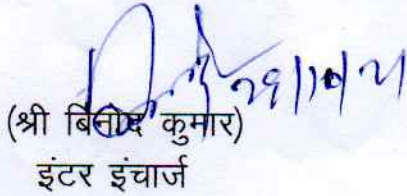 29/10/21
(श्री बिनोद कुमार)
इंटर इंचार्ज